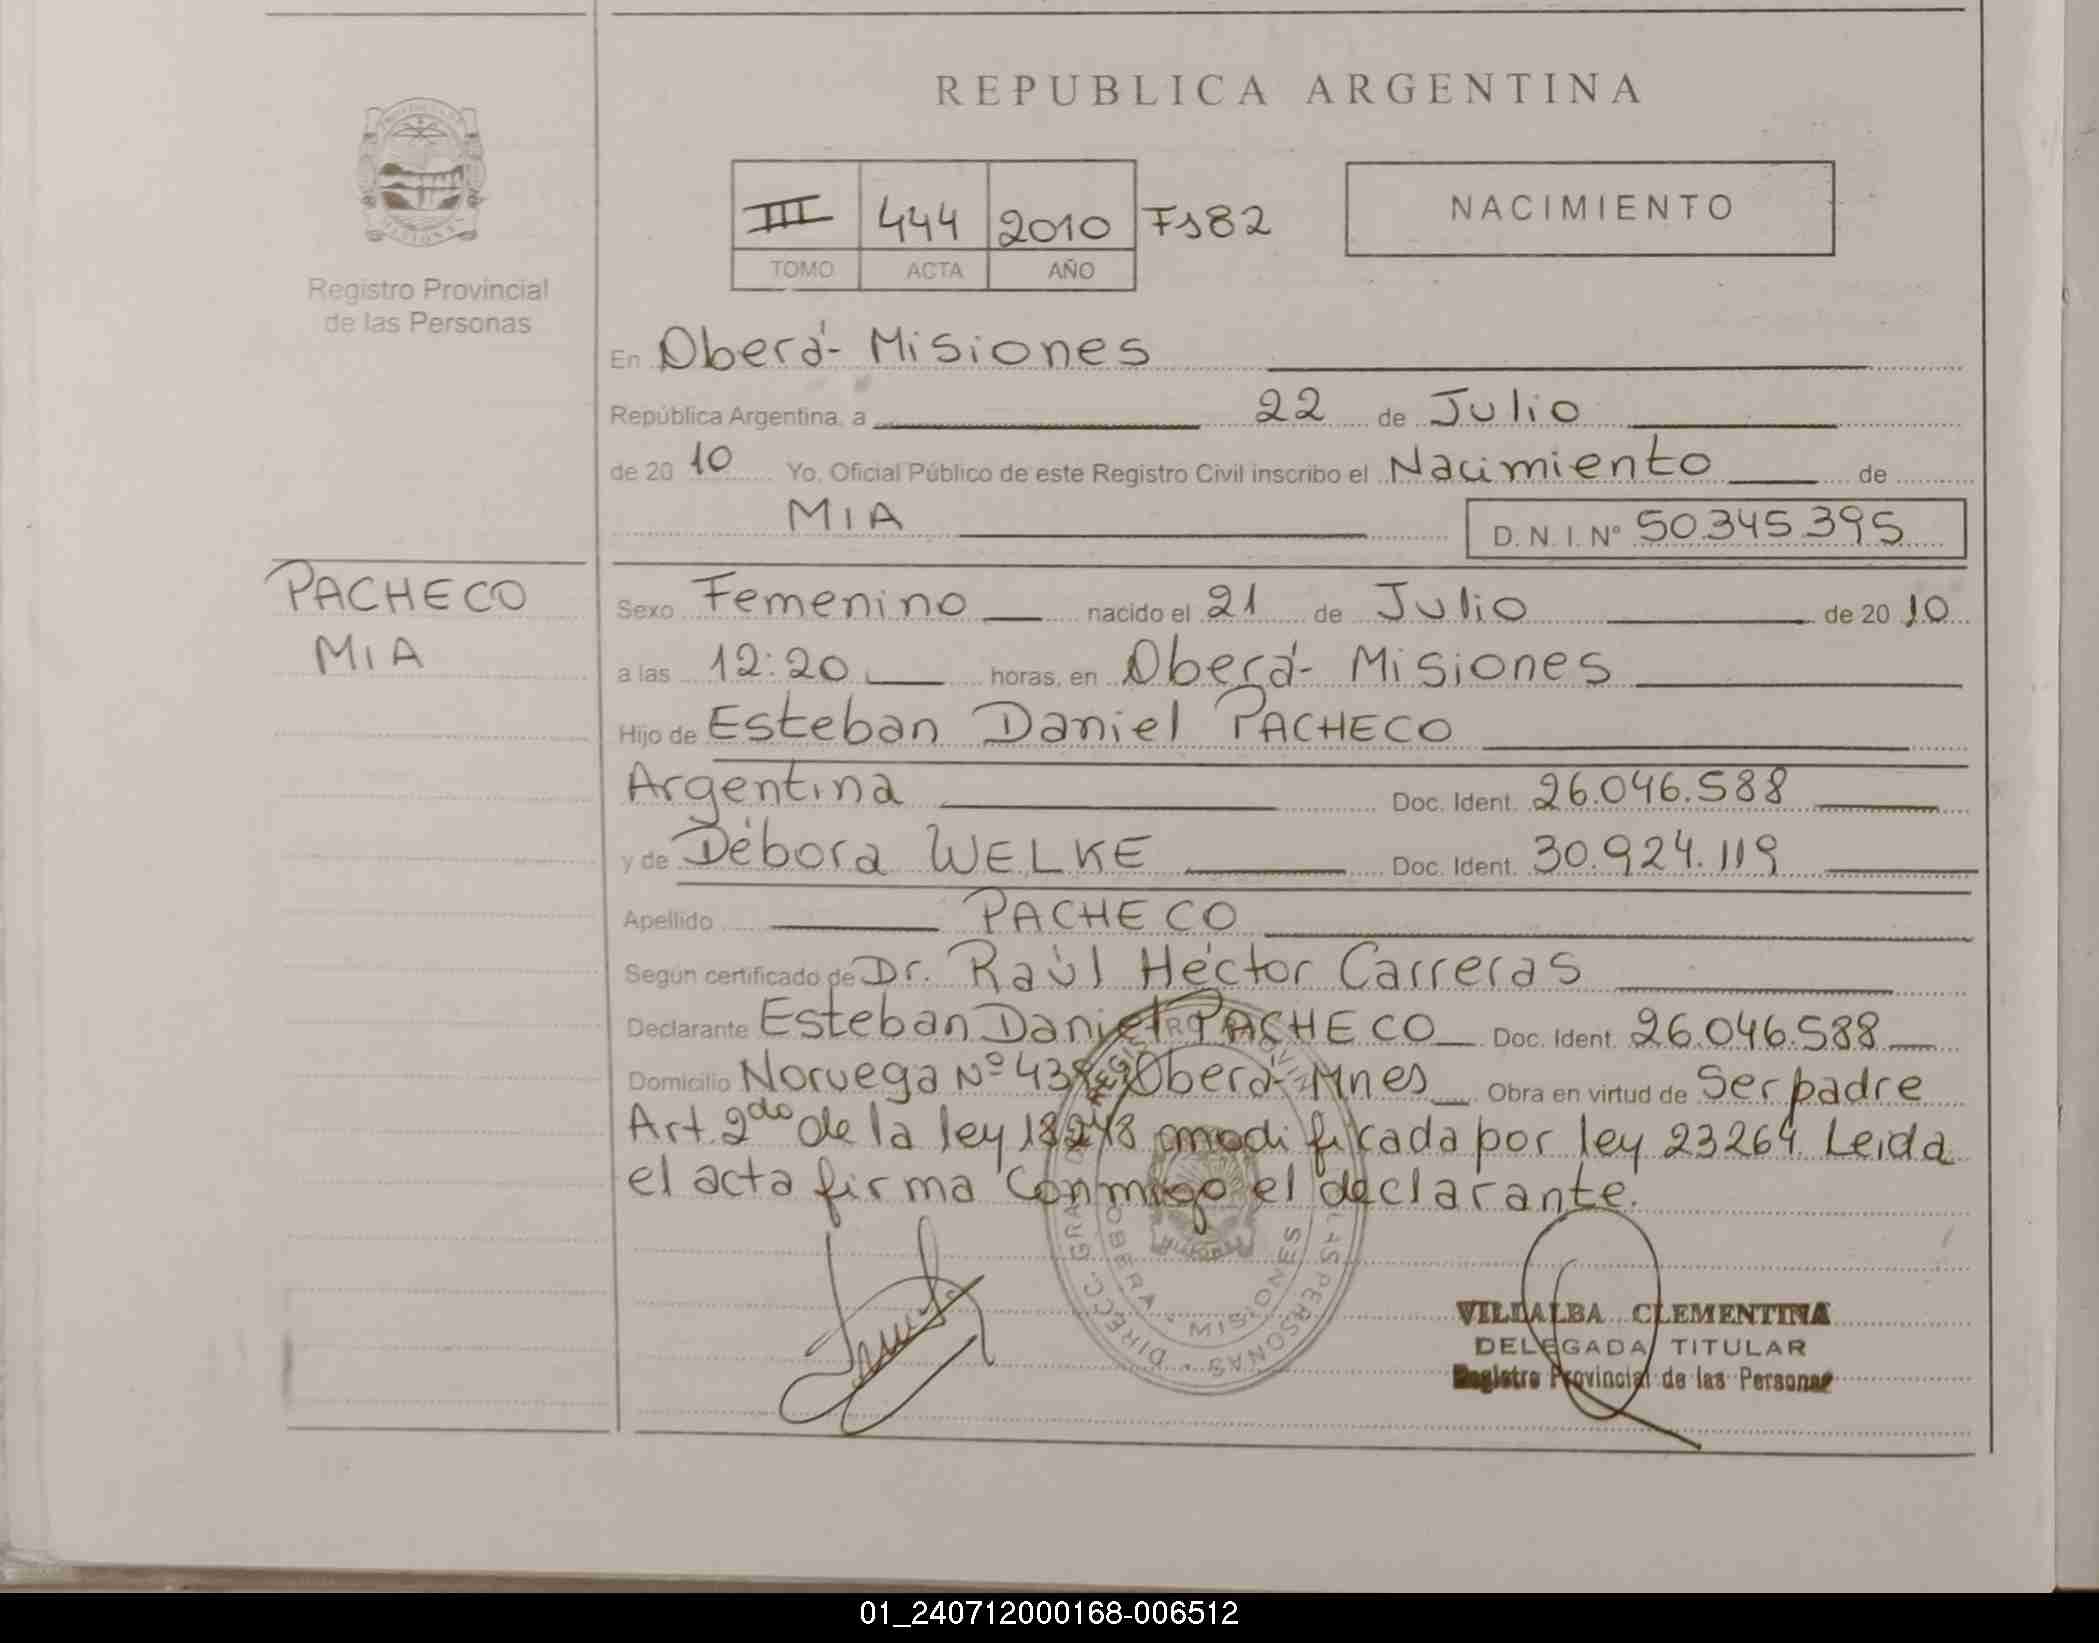 REPUBLICA ARGENTINA
III 444 2010 Fs82
TOMO ACTA AÑO
NACIMIENTO
Registro Provincial
de las Personas
En Oberá- Misiones
República Argentina, a 22 de Julio
de 20 10 Yo, Oficial Público de este Registro Civil inscribo el Nacimiento de
MIA D. N. I. Nº 50.345.395
PACHECO
MIA
Sexo Femenino nacido el 21 de Julio de 20 10
a las 12:20 horas, en Oberá- Misiones
Hijo de Esteban Daniel PACHECO
Argentina Doc. Ident. 26.046.588
y de Débora WELKE Doc. Ident. 30.924.119
Apellido PACHECO
Según certificado de Dr. Raúl Héctor Carreras
Declarante Esteban Daniel PACHECO Doc. Ident. 26.046.588
Domicilio Noruega Nº Oberá- Mnes Obra en virtud de Ser padre
Art. 2do de la ley 18248 modificada por ley 23264. Leida
el acta firma conmigo el declarante.
DIRECC. GRAL. LAS PERSONAS
OBERA • MISIONES
VILLALBA CLEMENTINA
DELEGADA TITULAR
Registro Provincial de las Personas
01_240712000168-006512